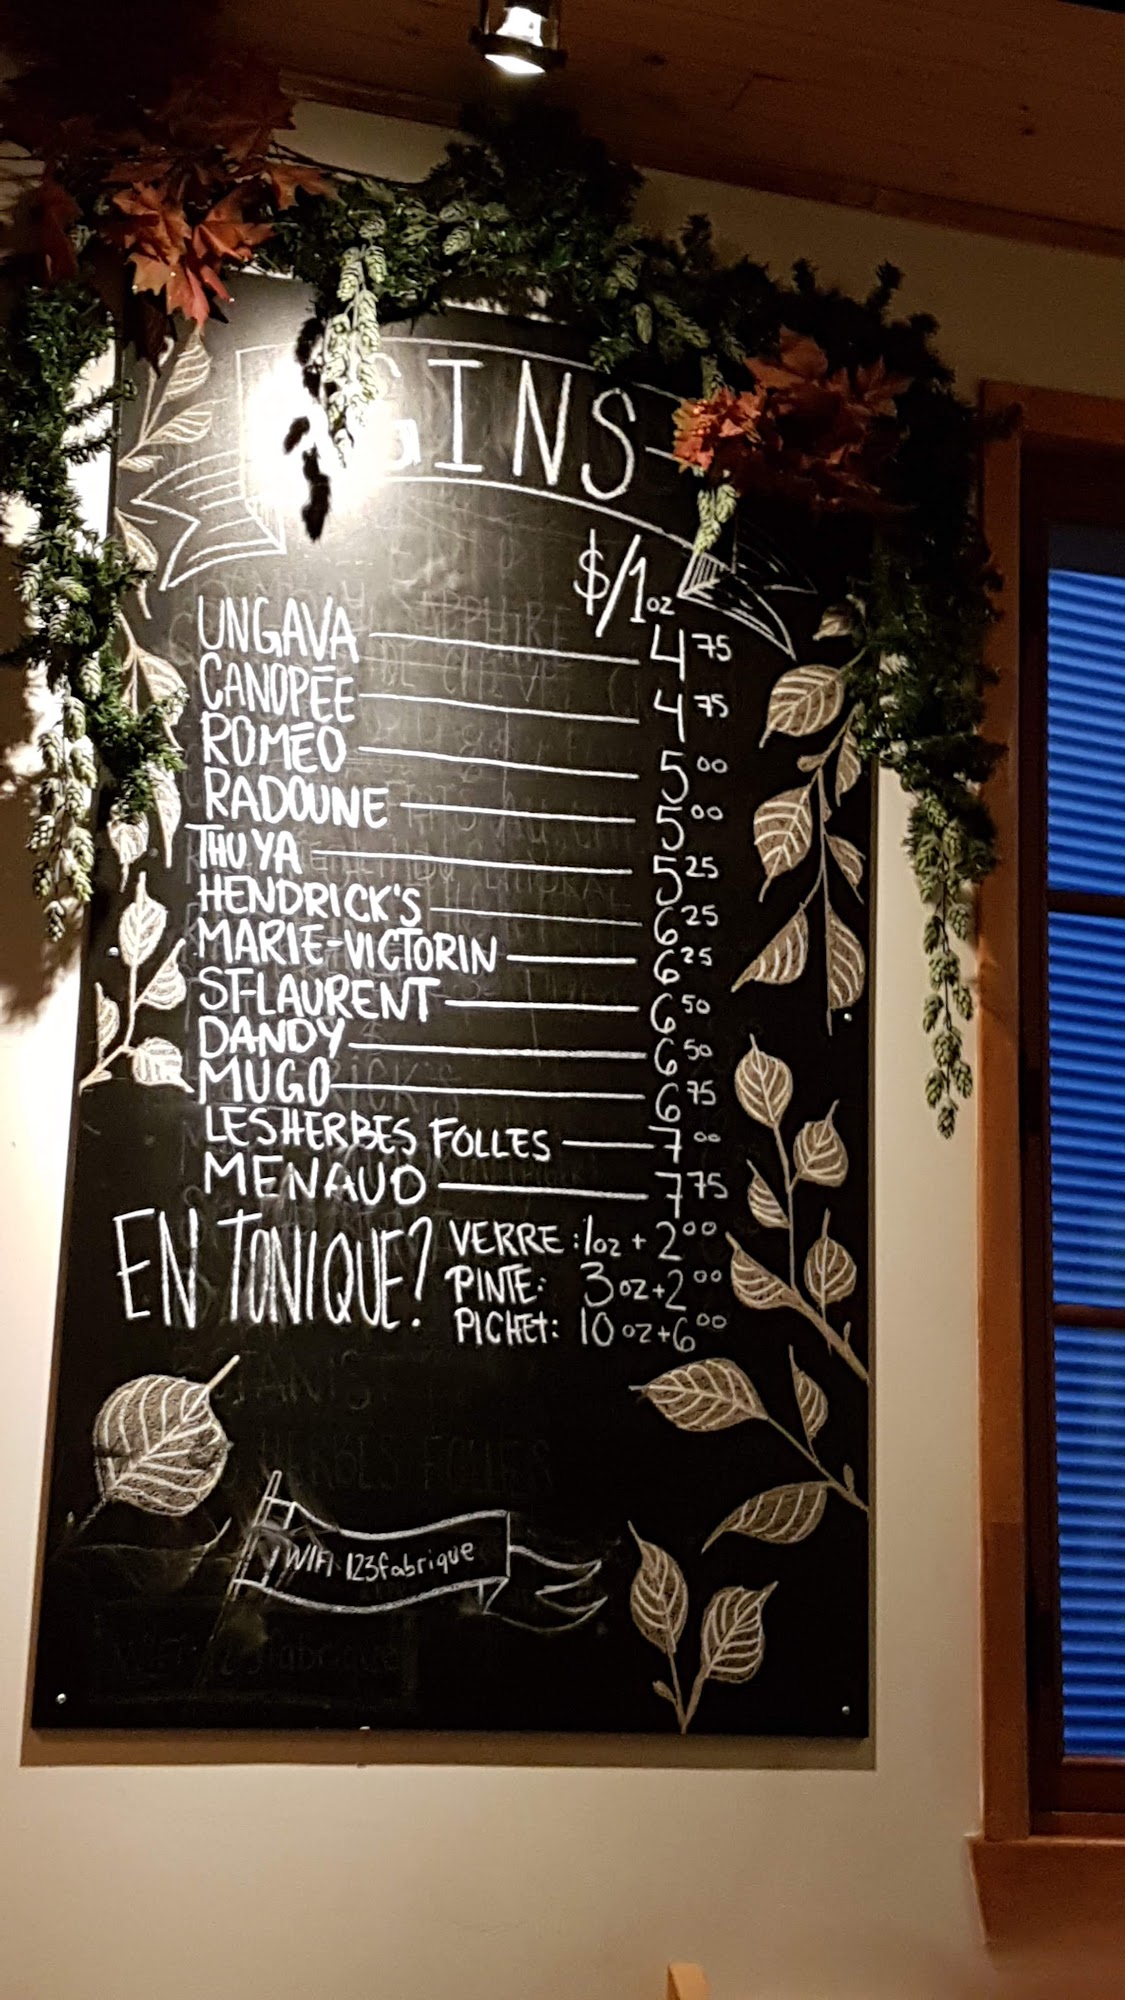 GINS
$/1oz
UNGAVA 4 75
CANOPÉE 4 75
ROMÉO 5 00
RADOUNE 5 00
THUYA 5 25
HENDRICK'S 6 25
MARIE-VICTORIN 6 25
ST-LAURENT 6 50
DANDY 6 50
MUGO 6 75
LES HERBES FOLLES 7 00
MENAUD 7 75
EN TONIQUE? VERRE: 1oz + 2 00
PINTE: 3 oz + 2 00
PICHET: 10 oz + 6 00
WIFI 123fabrique